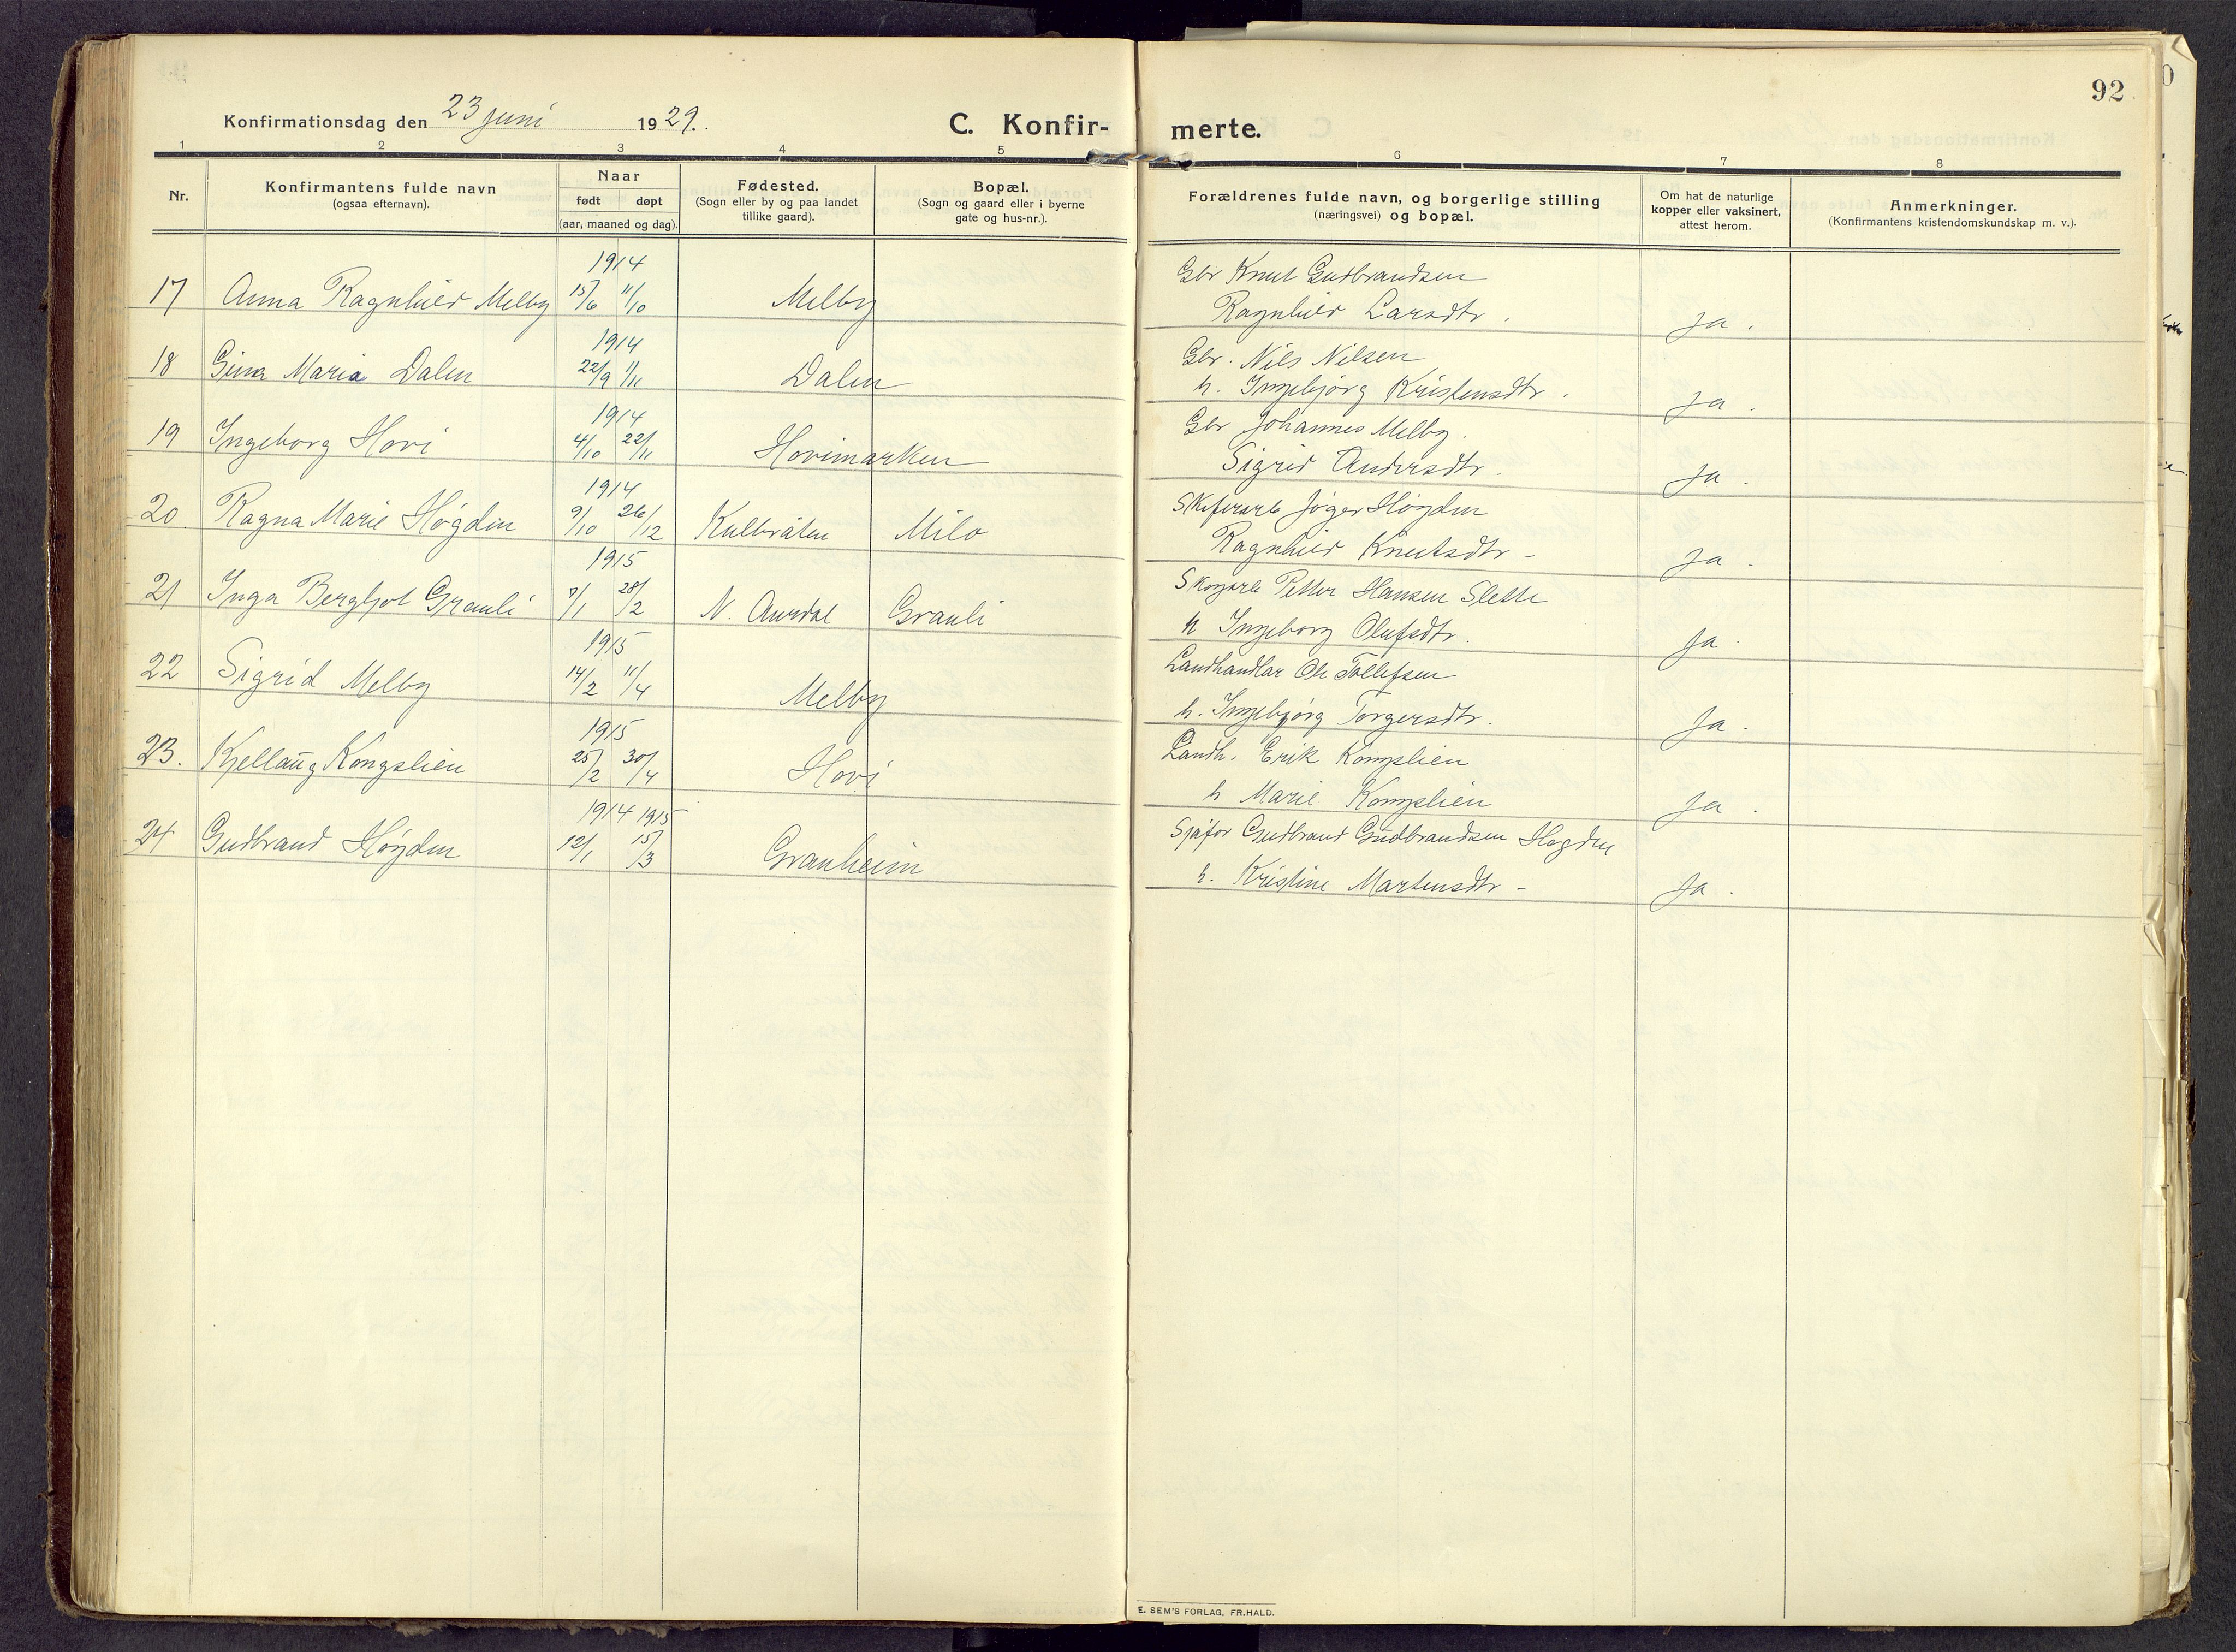 92
Konfirmationsdag den 23 juni 1929.
C. Konfir-
merte.
1 2 3 4 5 6 7 8
Nr.
Konfirmantens fulde navn
(ogsaa efternavn).
Naar
født døpt
(aar, maaned og dag).
Fødested.
(Sogn eller by og paa landet
tillike gaard).
Bopæl.
(Sogn og gaard eller i byerne
gate og hus-nr.).
Forældrenes fulde navn, og borgerlige stilling
(næringsvei) og bopæl.
Om hat de naturlige
kopper eller vaksinert,
attest herom.
Anmerkninger.
(Konfirmantens kristendomskundskap m. v.).
1914
Gbr Knut Gudbrandsen
17 Anna Ragnhild Melby 15/6 11/10 Melby
Ragnhild Larsdtr. ja.
1914
Gbr. Nils Nilsen
18 Gina Maria Dalen 22/9 1/11 Dalen
h. Ingebjørg Kristensdtr. ja.
1914
Gbr Johannes Melby.
19 Ingeborg Hovi 4/10 22/11 Hovimarken
Sigrid Andersdtr. ja.
1914
Skiferarb Jøger Høgden
20. Ragna Marie Høgden 9/10 26/12 Kulbråten Milo
Ragnhild Knutsdtr - ja.
1915
Skogarb Petter Hansen Slette
21 Inga Bergljot Granli 7/1 28/2 N. Aurdal Granli
h Ingeborg Olufsdtr. ja.
1915
Landhandlar Ole Tollefsen
22 Sigrid Melby 14/2 11/4 Melby
h. Ingebjørg Torgersdtr. ja.
1915
Landh. Erik Kongslien
23. Kjellaug Kongslien 25/2 30/4 Hovi
h Marie Kongslien ja.
1914 1915
Sjåfør Gudbrand Gudbrandsen Høgden
24 Gudbrand Høgden 12/1 15/3 Granheim
h. Kristine Martensdtr - ja.
E. SEM'S FORLAG, FR.HALD.